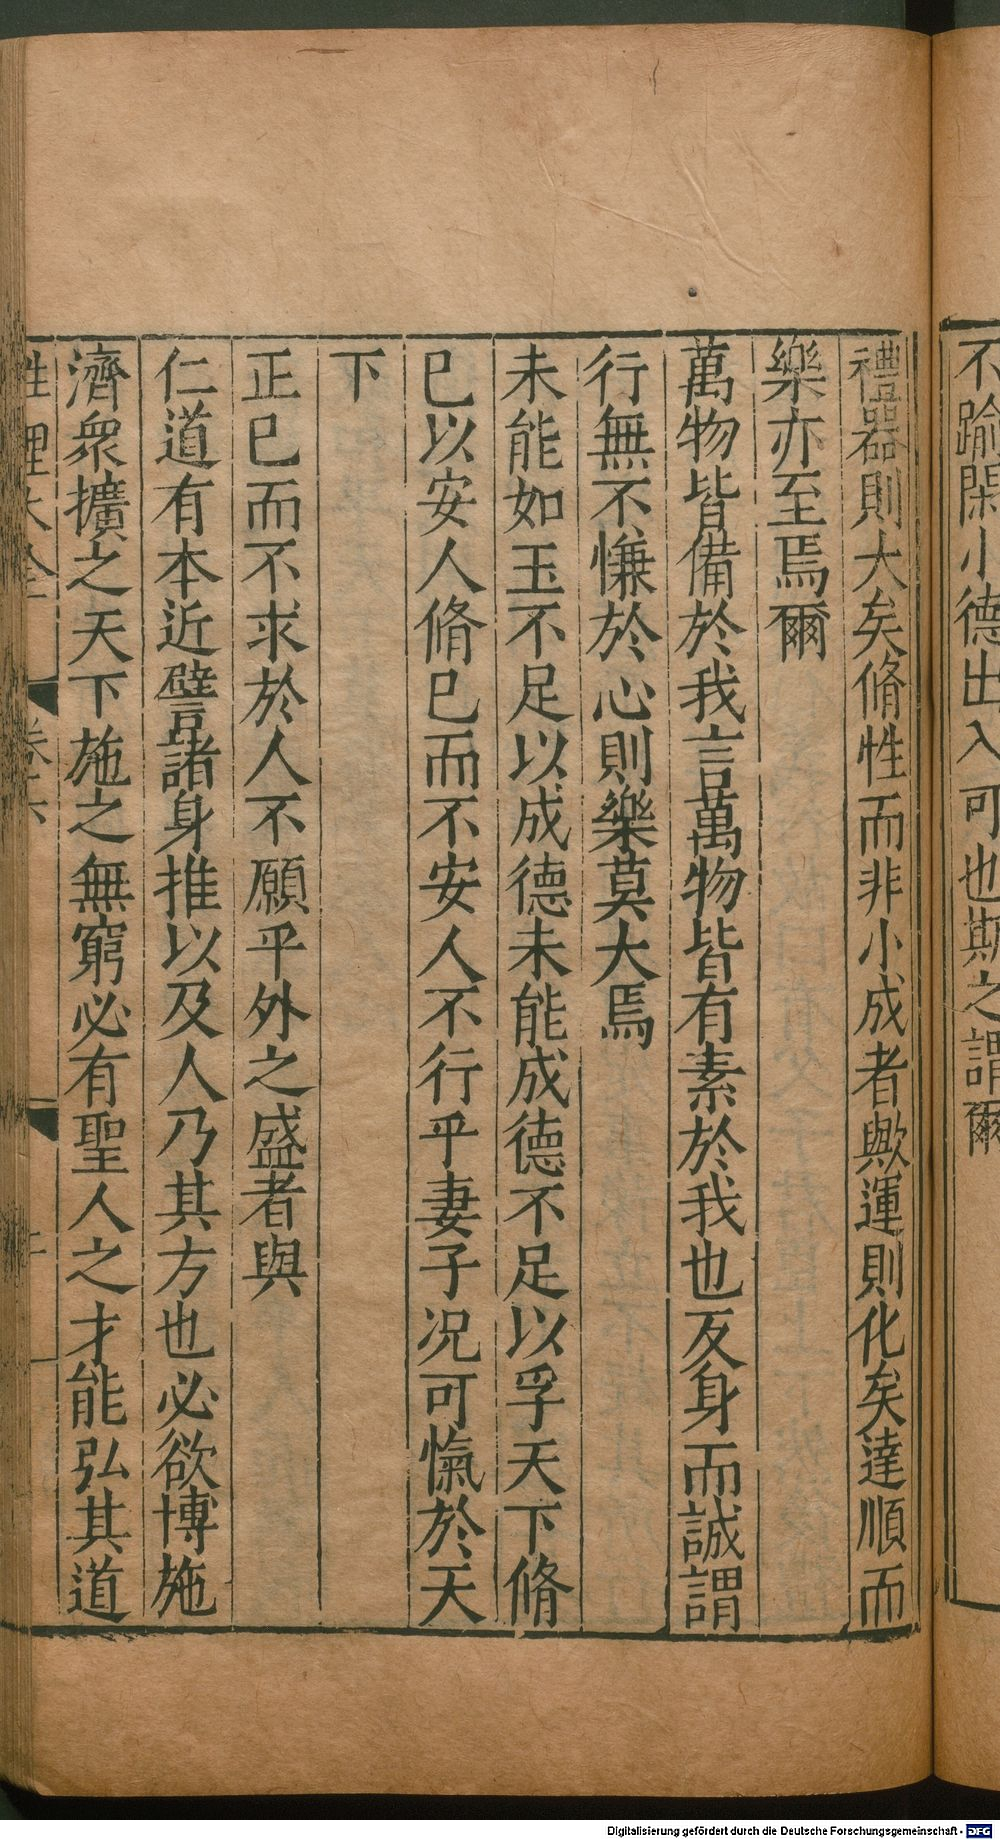 不踰閑小德出入可也斯之謂爾
禮器則大矣脩性而非小成者歟運則化矣達順而
樂亦至焉爾
萬物皆備於我言萬物皆有素於我也反身而誠謂
行無不慊於心則樂莫大焉
未能如玉不足以成德未能成德不足以孚天下脩
已以安人脩已而不安人不行乎妻子况可愾於天
下
正已而不求於人不願乎外之盛者與
仁道有本近譬諸身推以及人乃其方也必欲博施
濟衆擴之天下施之無窮必有聖人之才能弘其道
性理大全 卷六
Digitalisierung gefördert durch die Deutsche Forschungsgemeinschaft - DFG